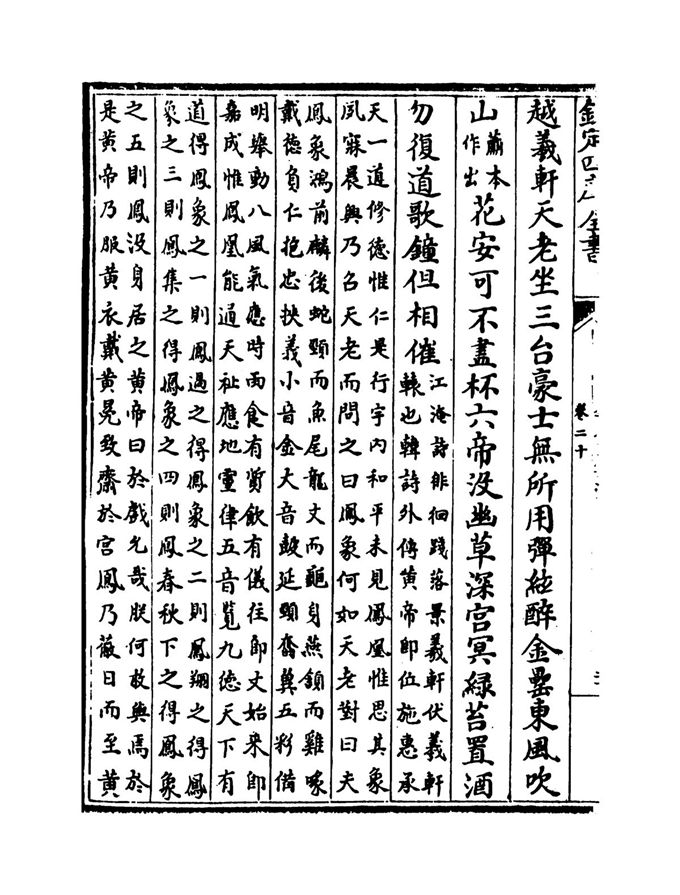 欽定四庫全書
卷二十
越羲軒天老坐三台豪士無所用彈絃醉金罍東風吹
山蕭本作出花安可不盡杯六帝没幽草深宫冥緑苔置酒
勿復道歌鐘但相催江淹詩徘徊踐落景羲軒伏羲軒
轅也韓詩外傳黄帝即位施惠承
天一道修徳惟仁是行宇内和平未見鳳凰惟思其象
夙寐晨興乃召天老而問之曰鳳象何如天老對曰夫
鳳象鴻前麟後蛇頸而魚尾龍文而龜身燕頷而雞啄
戴徳負仁抱忠挾義小音金大音鼓延頸奮翼五彩備
明舉動八風氣應時雨食有質飲有儀往即文始來即
嘉成惟鳳凰能通天祉應地靈律五音覽九徳天下有
道得鳳象之一則鳳過之得鳳象之二則鳳翔之得鳳
象之三則鳳集之得鳳象之四則鳳春秋下之得鳳象
之五則鳳没身居之黄帝曰於戲允哉朕何敢與焉於
是黄帝乃服黄衣戴黄冕致齋於宫鳳乃蔽日而至黄